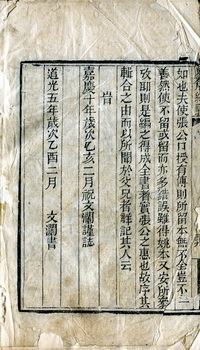 如也夫使張公口授有傳則所留本無不全豈不一
善然使不留或留而亦多錯誤雖得姚本又安所繫
攷耶則是編之得成全書者實張公之惠也故序其
輯合之由而以所聞於文兄者詳記其人云
嘉慶十年歲次乙亥二月祝文瀾謹誌
道光五年歲次乙酉二月 文瀾書